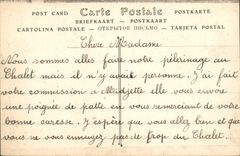 POST CARD Carte Postale POSTKARTE
BRIEFKAART - POSTKAART
CARTOLINA POSTALE - ОТКРЫТОЕ ПИСЬМО - TARJETA POSTAL
Chere Madame
Nous sommes allés faire notre pélerinage au
Chalet mais il n'y avait personne. J'ai fait
votre commission à Midjette elle vous envoie
une poignée de patte en vous remerciant de votre
bonne caresse. J'espère que vous allez bien et que
vous ne vous ennuyez pas de trop du Chalet.